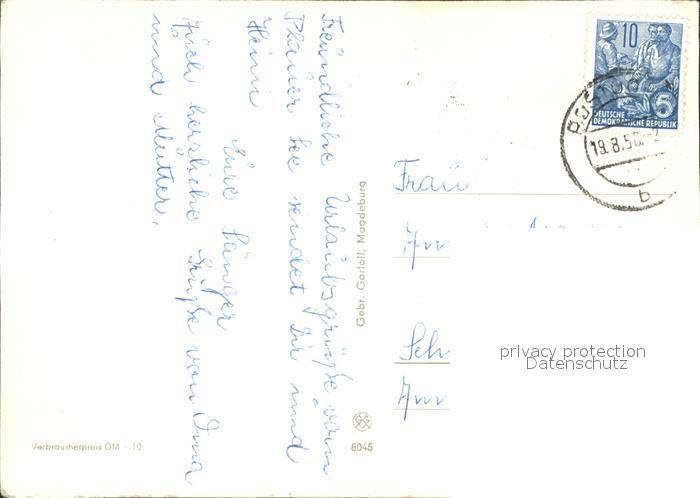 Freundliche Urlaubsgrüße vom
Plauer See sendet Dir und
Heini
Eure Sänger
Auch herzliche Grüße von Oma
und Mutter.
Gebr. Garloff, Magdeburg
Verbraucherpreis DM -.10
6045
10
5
DEUTSCHE
DEMOKRATISCHE REPUBLIK
19.8.56
b
Frau
privacy protection
Datenschutz